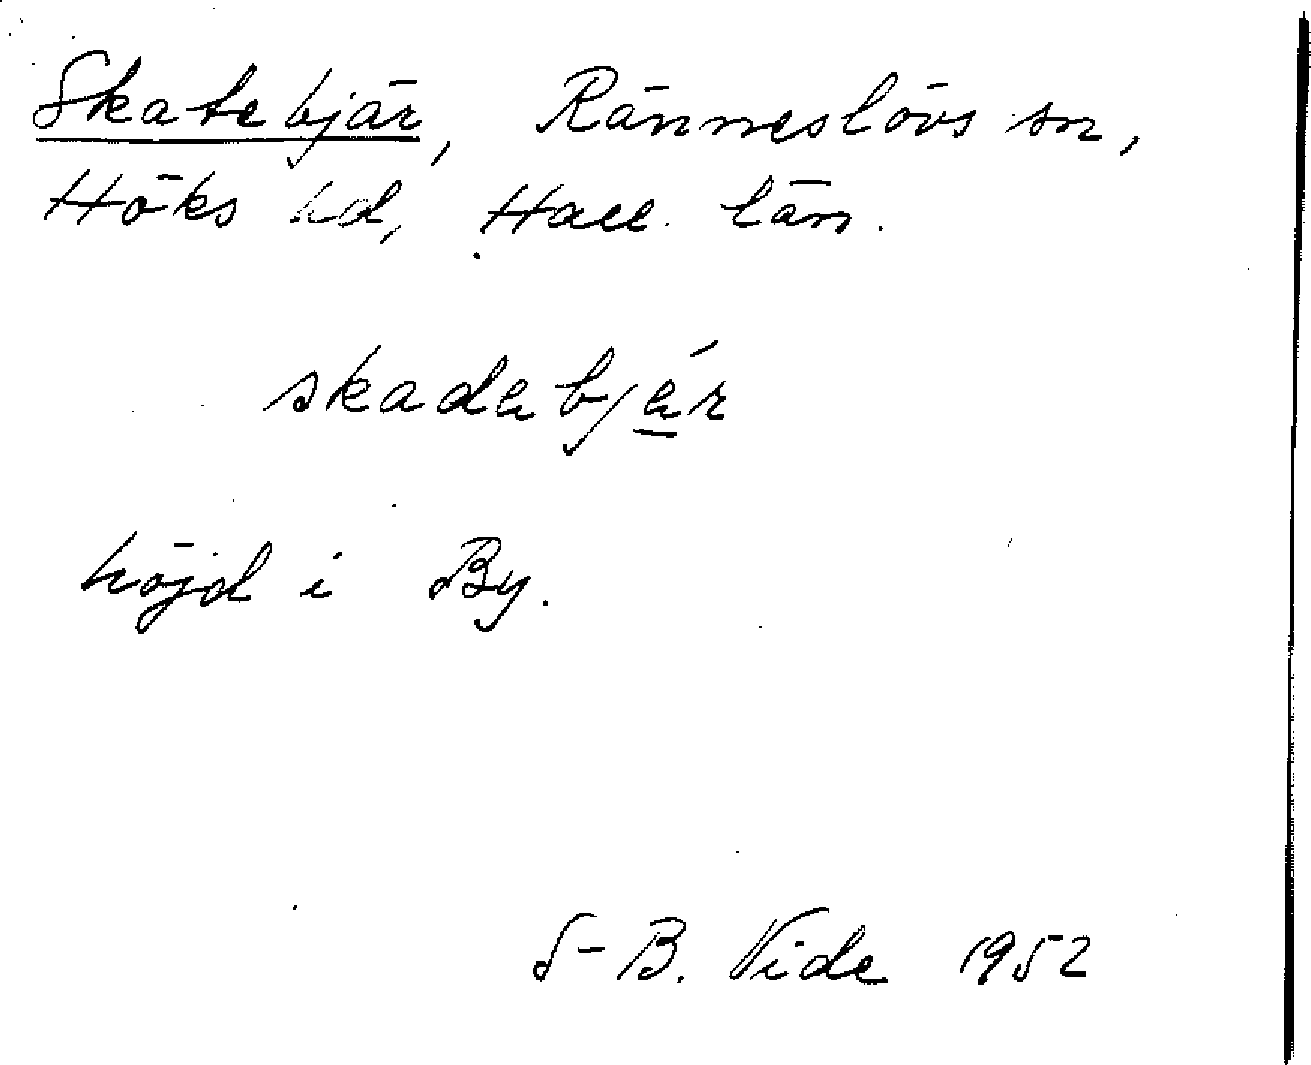 Skatebjär, Ränneslövs sn,
Höks hd, Hall. län.
skadabjär
höjd i By.
S-B. Vide 1952